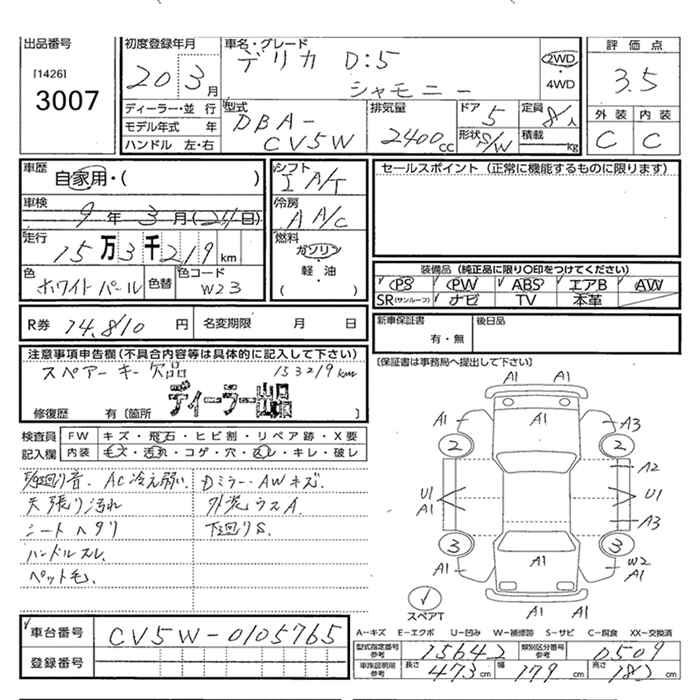 出品番号
[1426]
3007
初度登録年月
20 3月
ディーラー・並 行
モデル年式 年
ハンドル 左・右
車名・グレード
デリカ D:5
シャモニー
2WD
・
4WD
型式
DBA-
CV5W
排気量
2400cc
ドア 5
形状 S/W
定員 8人
積載 kg
評価点
3.5
外装 内装
C C
車歴
自家用・( )
車検
9年 3月(24日)
走行
15万3千219km
色
ホワイトパール
色替
色コード
W23
シフト
I A/T
冷房
A A/C
燃料
ガソリン
・
軽・油
( )
R券 14,810 円
名変期限 月 日
セールスポイント (正常に機能するものに限ります)
装備品 (純正品に限り○印をつけてください)
PS PW ABS エアB AW
SR(サンルーフ) ナビ TV 本革
新車保証書
有・無
後日品
〔保証書は事務局へ提出して下さい〕
注意事項申告欄(不具合内容等は具体的に記入して下さい)
スペアーキー欠品 153219km
ディーラー出品
修復歴 有〔箇所 〕
検査員 FW キズ・飛石・ヒビ割・リペア跡・X要
記入欄 内装 キズ・汚れ・コゲ・穴・スレ・キレ・破レ
AC冷え弱い Dミラー、AWキズ
天張り汚れ 外装ウスA
シートヘタリ 下回りS
ハンドルスレ
ペット毛
A1 A1
A1 A1 A3
2 2
A2
U1 U1
A1
A3
3 3
A1 A1 W2
A1
スペアT
A1 A1
車台番号 CV5W-0105765
登録番号
A-キズ E-エクボ U-凹み W-補修跡 S-サビ C-腐食 XX-交換済
型式指定番号 参考 15642 類別区分番号 参考 0509
車検証明用 参考 長さ 473cm 幅 179cm 高さ 182cm